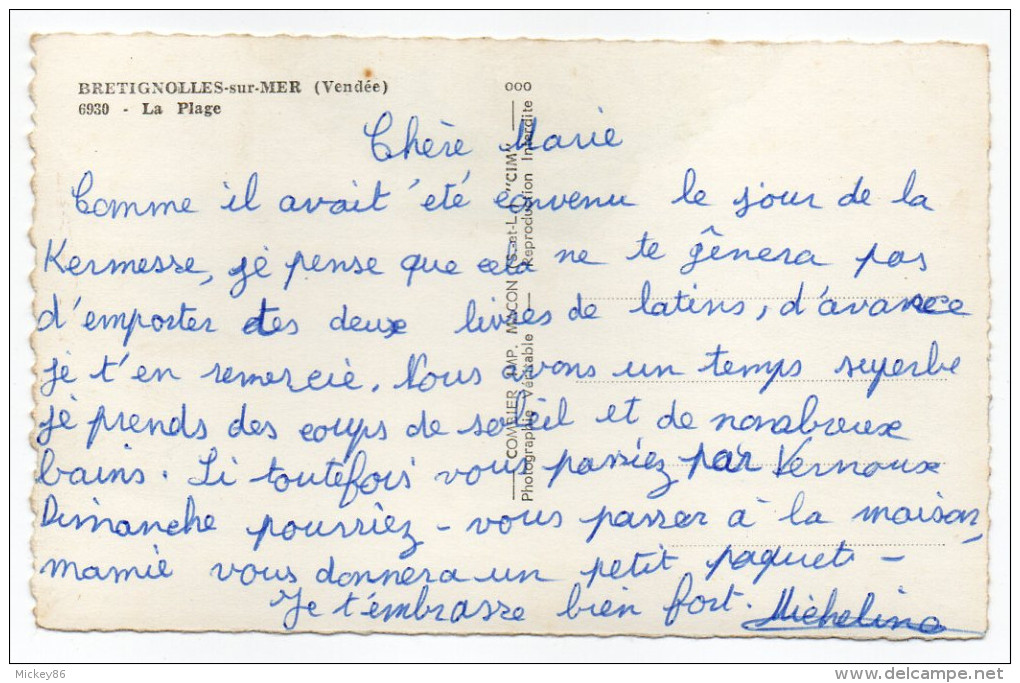 BRETIGNOLLES-sur-MER (Vendée)
6930 - La Plage
ooo
COMBIER IMP. MACON (S.-et-L.) "CIM"
Photographie Véritable — Reproduction Interdite
Chère Marie
Comme il avait été convenu le jour de la
Kermesse, je pense que cela ne te gênera pas
d'emporter des deux livres de latins, d'avance
je t'en remercie. Nous avons un temps superbe
je prends des coups de soleil et de nombreux
bains. Si toutefois vous passiez par Vernoux
Dimanche pourriez-vous passer à la maison,
mamie vous donnera un petit paquet -
Je t'embrasse bien fort. Micheline
Mickey86
www.delcampe.net